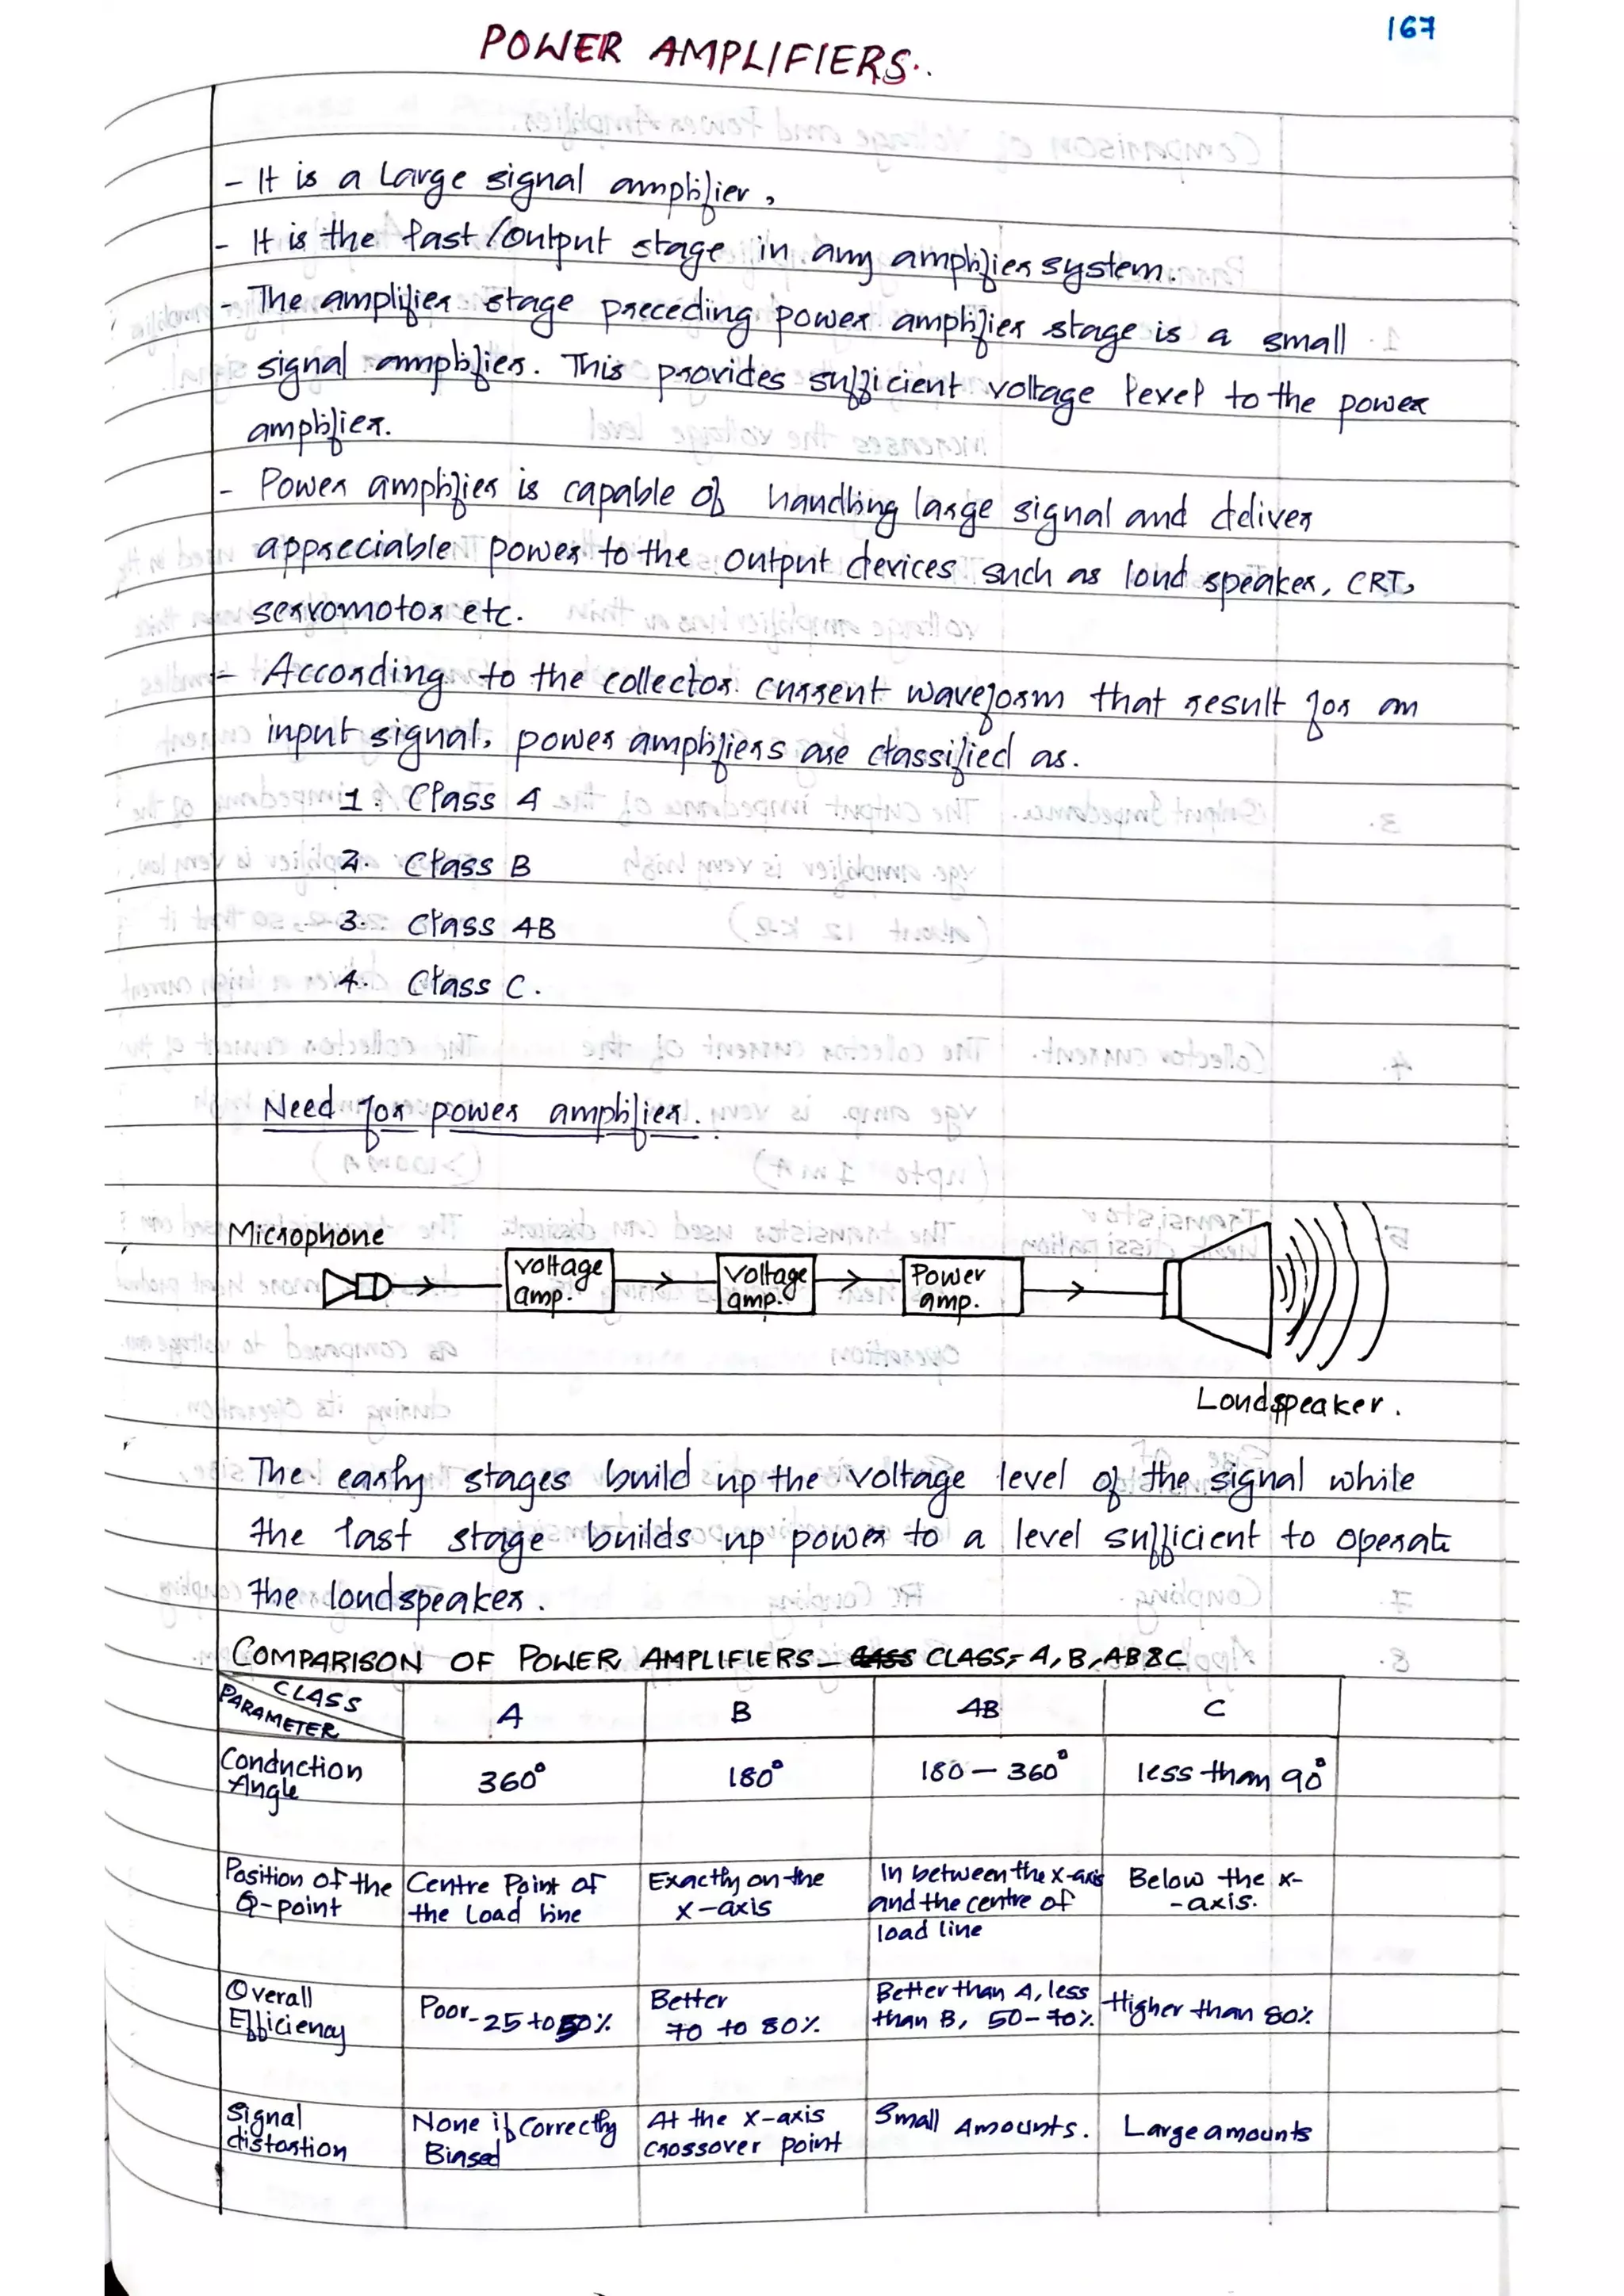 167
POWER AMPLIFIERS..
- It is a Large signal amplifier,
- It is the last/output stage in any amplifier system.
- The amplifier stage preceding power amplifier stage is a small
signal amplifier. This provides sufficient voltage level to the power
amplifier.
- Power amplifier is capable of handling large signal and deliver
appreciable power to the output devices such as loud speaker, CRT,
servomotor etc.
- According to the collector current waveform that result for an
input signal, power amplifiers are classified as.
1. Class A
2. Class B
3. Class AB
4. Class C.
Need for power amplifier.
Microphone
voltage amp.
Voltage amp.
Power amp.
Loudspeaker.
The early stages build up the voltage level of the signal while
the last stage builds up power to a level sufficient to operate
the loudspeaker.
COMPARISON OF POWER AMPLIFIERS - CLASS- A, B, AB & C
CLASS
PARAMETER
A
B
AB
C
Conduction Angle
360°
180°
180 - 360°
less than 90°
Position of the Q-point
Centre Point of the Load line
Exactly on the x-axis
In between the x-axis and the centre of load line
Below the x- -axis.
Overall Efficiency
Poor - 25 to 50%
Better 70 to 80%
Better than A, less than B, 50-70%
Higher than 80%
Signal distortion
None if Correctly Biased
At the x-axis crossover point
Small Amounts.
Large amounts